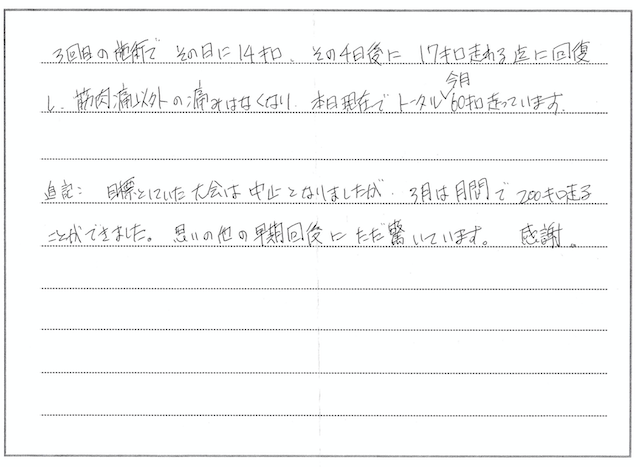 3回目の施術で その日に14キロ、その4日後に 17キロ走れる迄に回復
し、筋肉痛以外の痛みはなくなり、本日現在でトータル今月60キロ走っています。
追記: 目標としていた大会は中止となりましたが、3月は月間で200キロ走る
ことができました。思いの他の早期回復にただ驚いています。 感謝。